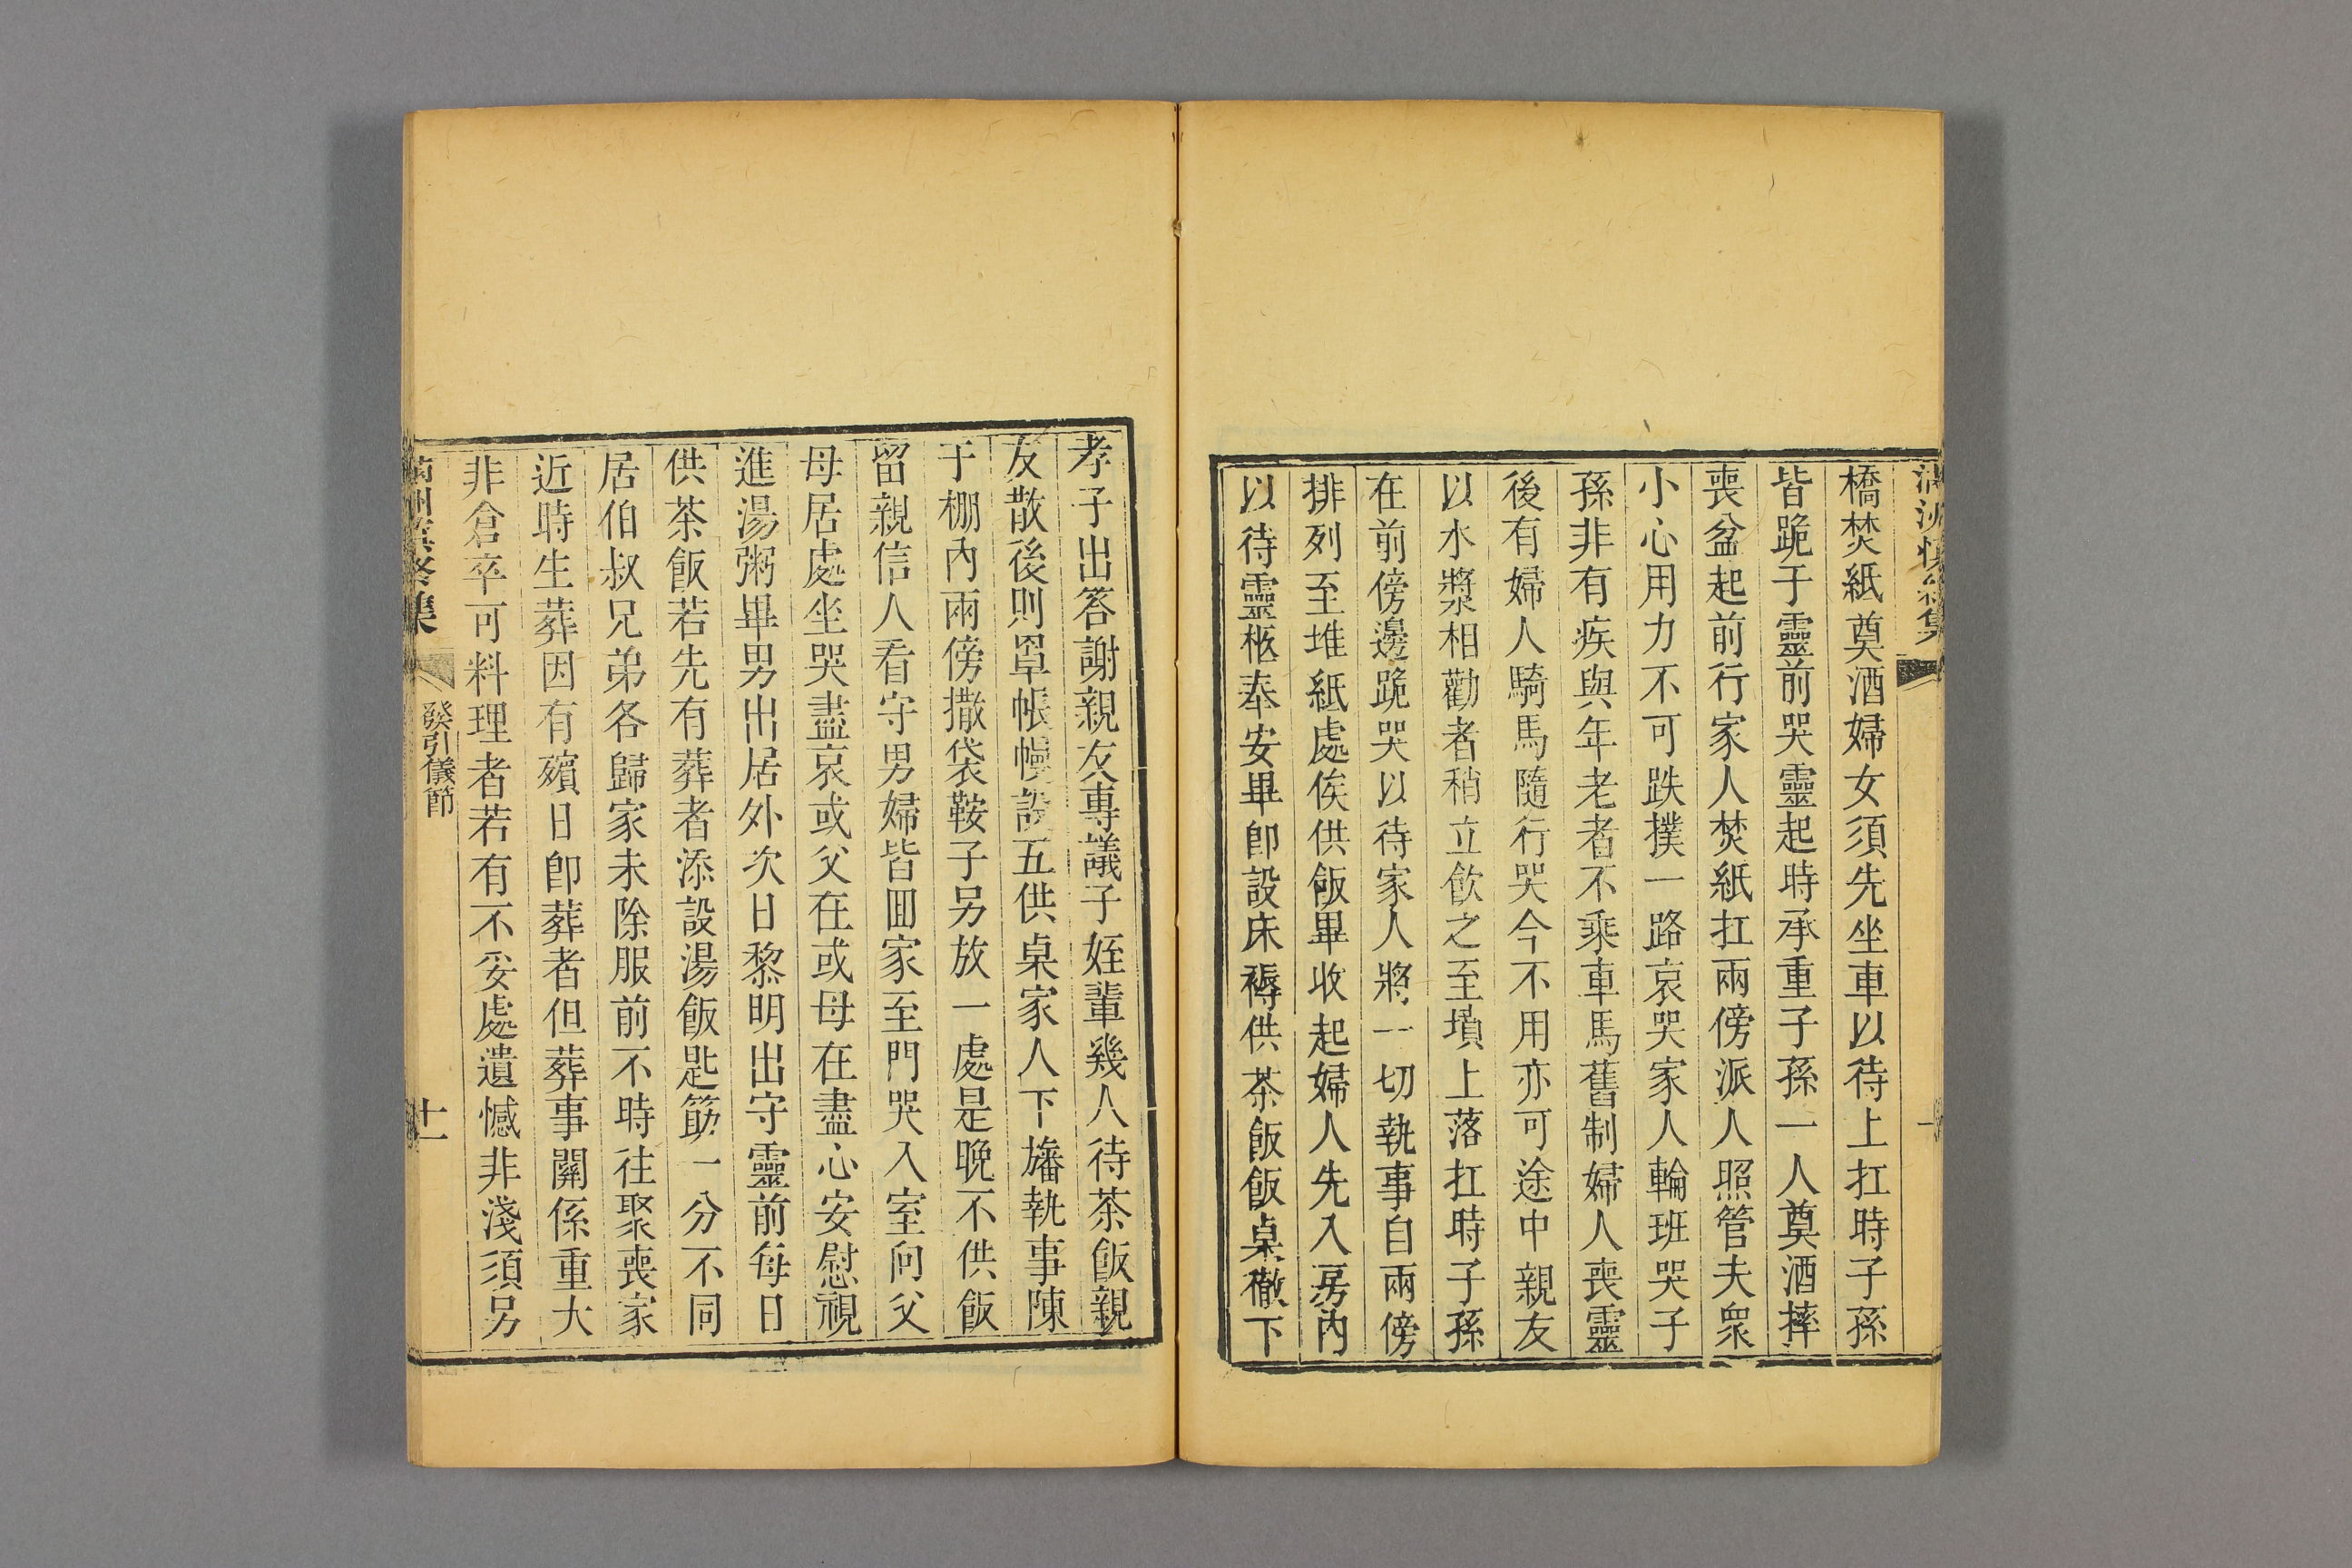 橋焚紙奠酒婦女須先坐車以待上扛時子孫
皆跪于靈前哭靈起時承重子孫一人奠酒摔
喪盆起前行家人焚紙扛兩傍派人照管夫衆
小心用力不可跌撲一路哀哭家人輪班哭子
孫非有疾與年老者不乘車馬舊制婦人喪靈
後有婦人騎馬隨行哭今不用亦可途中親友
以水漿相勸者稍立飲之至墳上落扛時子孫
在前傍邊跪哭以待家人將一切執事自兩傍
排列至堆紙處俟供飯畢收起婦人先入房內
以待靈柩奉安畢卽設床褥供茶飯飯桌徹下
孝子出答謝親友專議子姪輩幾人待茶飯親
友散後則罩帳幔設五供桌家人下旛執事陳
于棚內兩傍撒袋鞍子另放一處是晚不供飯
留親信人看守男婦皆囬家至門哭入室向父
母居處坐哭盡哀或父在或母在盡心安慰視
進湯粥畢男出居外次日黎明出守靈前每日
供茶飯若先有葬者添設湯飯匙筯一分不同
居伯叔兄弟各歸家未除服前不時往聚喪家
近時生葬因有殯日卽葬者但葬事關係重大
非倉卒可料理者若有不妥處遺憾非淺須另
發引儀節
十一